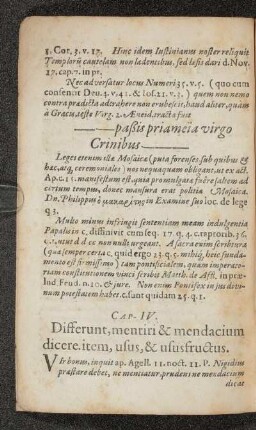 1. Cor. 3. v. 17. Hinc idem Iustinianus noster reliquit
Templorũ cautelam non ladentibus, sed lasis dari d. Nov.
17. cap. 7. in pr.
Nec adversatur locus Numeri 35. v. 5. (quo cum
consentit Deu. 4. v. 41. & Ios. 21. v. 3.) quem non nemo
contra prædicta adtrahere non erubescit, haud aliter, quam
à Græcis æste Virg. 2. Æneid. tracta fuit
passis priameia virgo
Crinibus
Leges etenim illæ Mosaica (puta forenses, sub quibus &
hæc, atq; ceremoniales) nos nequaquam obligant, ut ex act.
Ap. c. 15. manifestum est, quia promulgata fuere saltem ad
certum tempus, donec mansura erat politia Mosaica.
Dn. Philippus ὁ μακαρίτης in Examine suo loc. de lege
q. 3.
Multo minus infringit sententiam meam indulgentia
Papalis in c. diffinivit cum seq. 17. q. 4. c. reprobib. 36.
ut d. d. cc non nulli urgeant. A sacra enim scriptura
(quæ semper certa c. quid ergo 33. q. 5. mihiq; hoc funda-
mento est firmissimo) tam pontificialem, quam imperato-
riam constitutionem vinci scribit Marth. de Affl. in præ-
lud. Feud. n. 10. & jure. Non enim Pontifex in jus divi-
num potestatem habet. c. sunt quidam 25. q. 1.
CAP. IV.
Differunt, mentiri & mendacium
dicere. item, usus, & ususfructus.
VIr bonus, inquit ap. Agell. 11. noct. 11. P. Nigidius
præstare debet, ne mentiatur, prudens ne mendacium
dicat